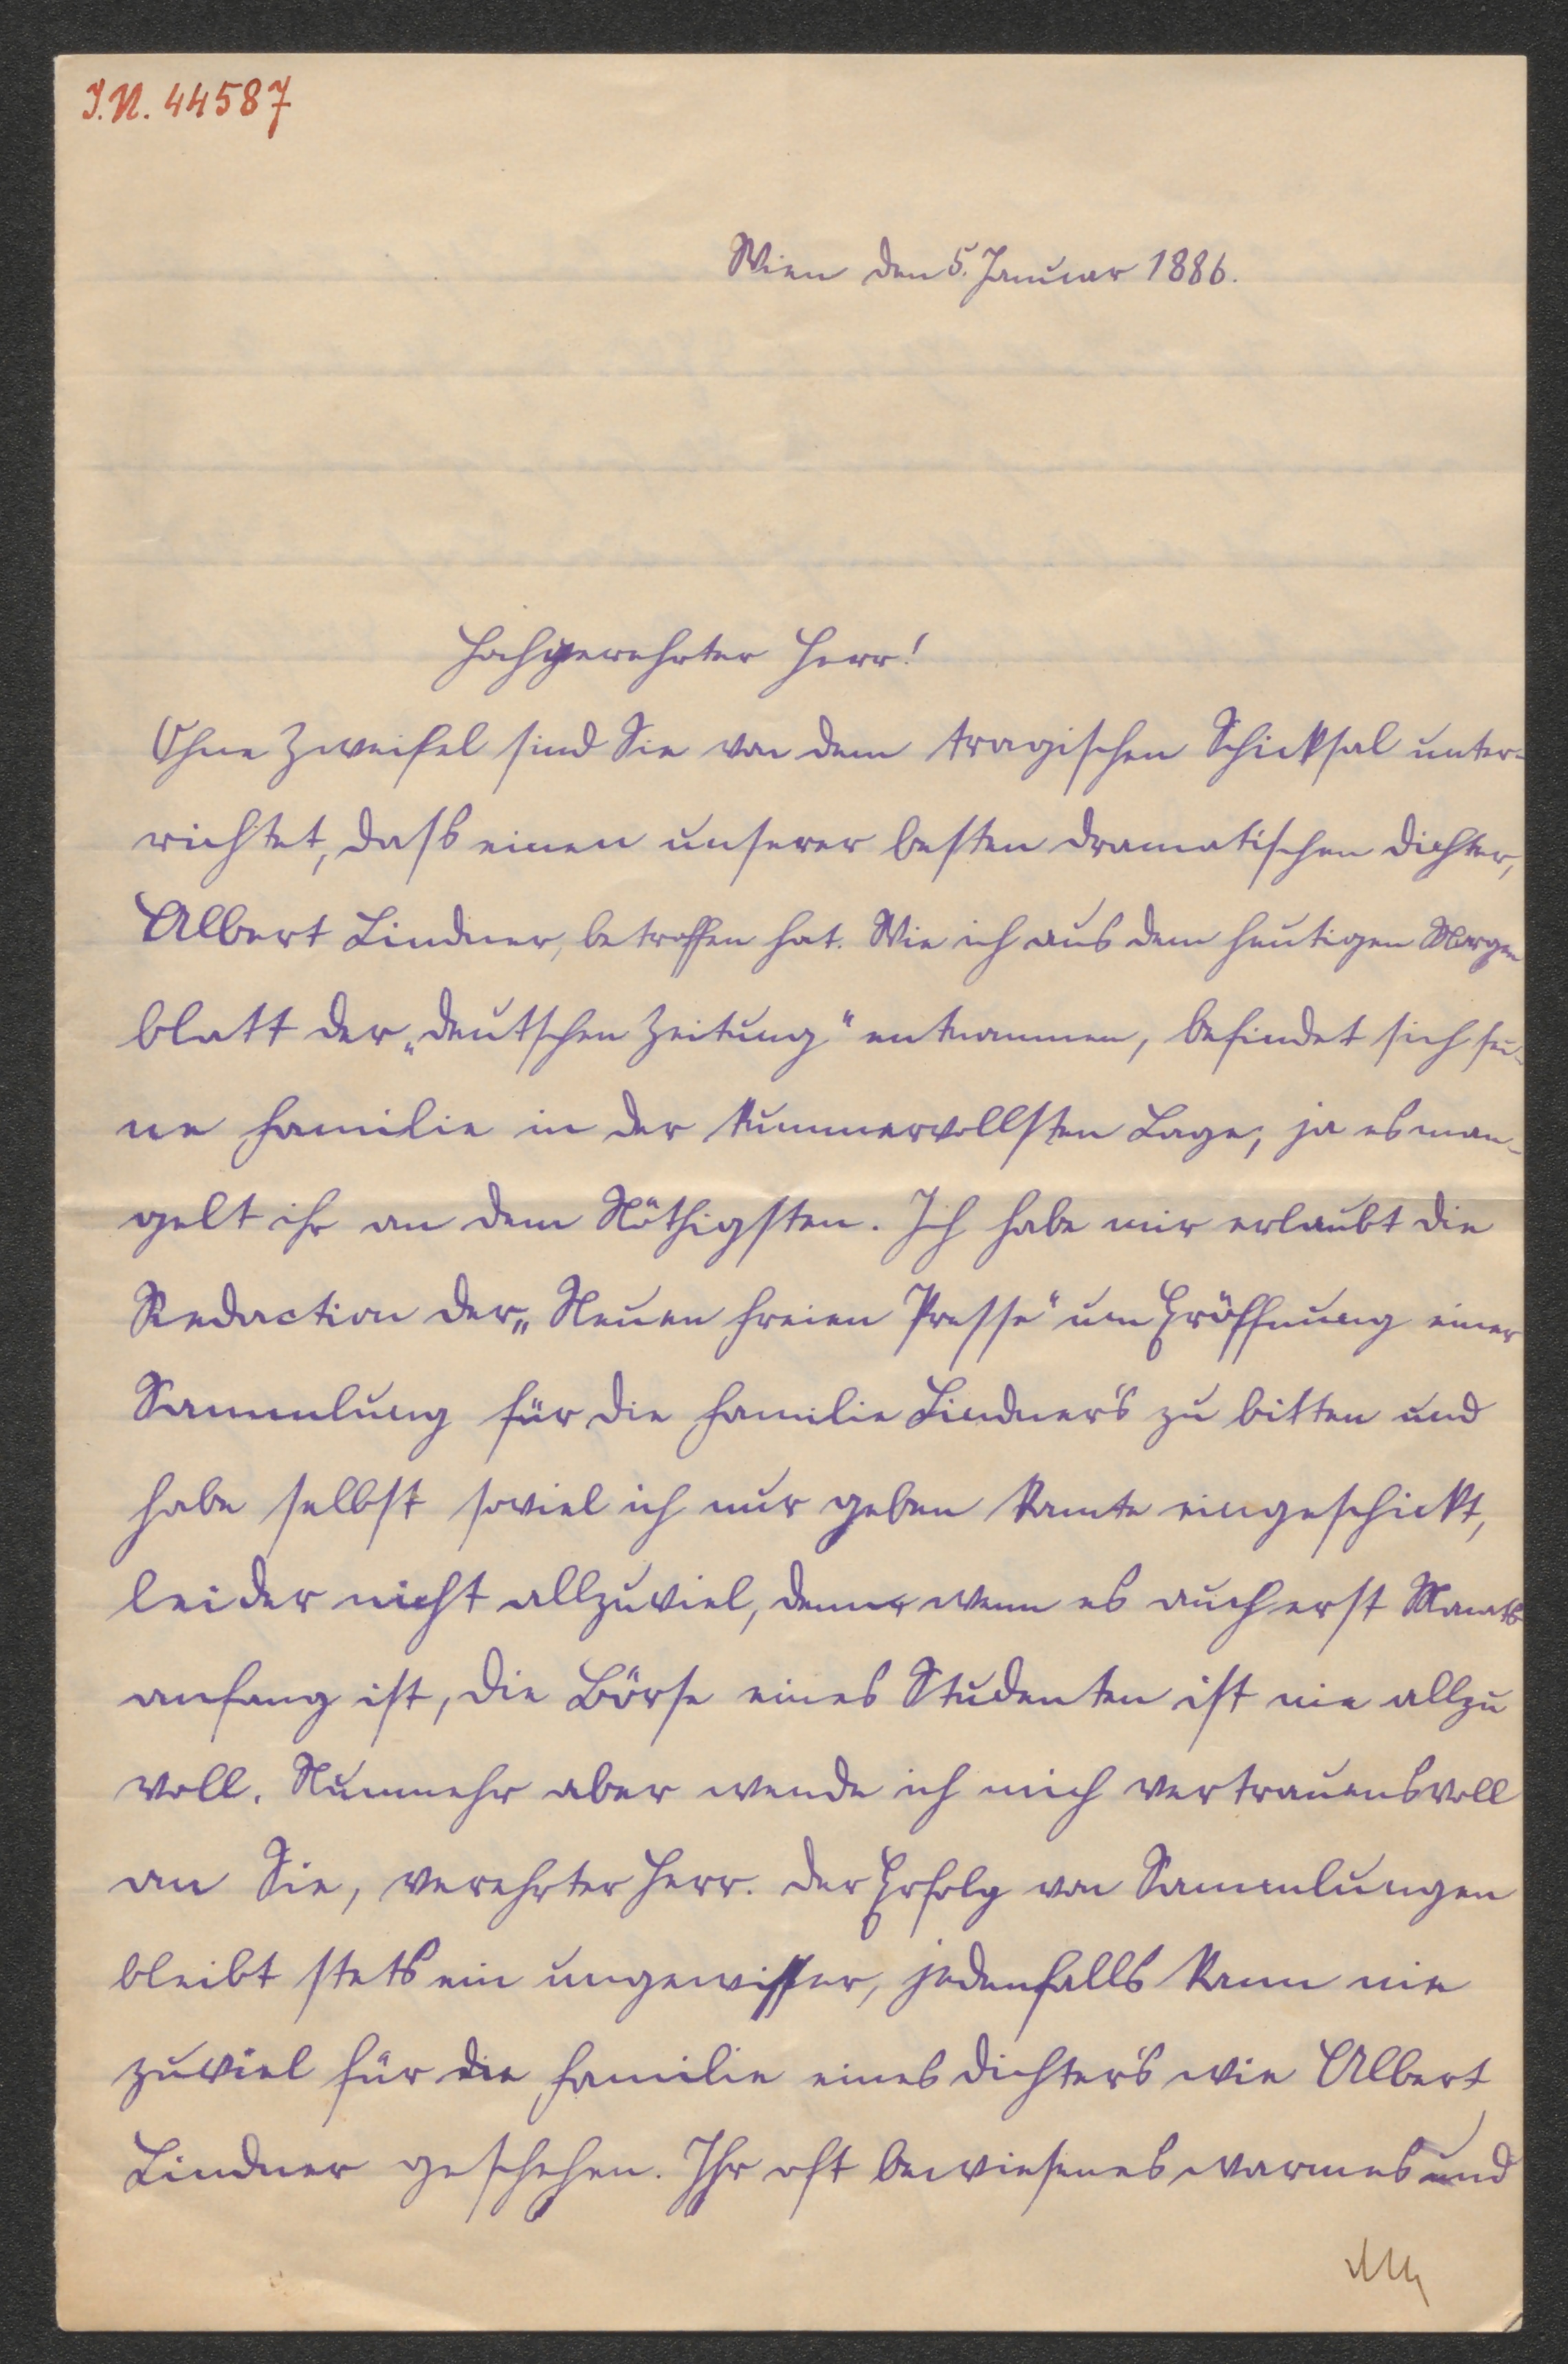 I.N. 44587
Wien den 5. Januar 1886.
Hochverehrter Herr!
Ohne Zweifel sind Sie von dem tragischen Schicksal unter-
richtet, daſs einen unserer besten dramatischen Dichter,
Albert Lindner, betroffen hat. Wie ich aus dem heutigen Morgen
blatt der „Deutschen Zeitung" entnommen, befindet sich sei-
ne Familie in der kummervollsten Lage; ja es man-
gelt ihr an dem Nöthigsten. Ich habe mir erlaubt die
Redaction der „Neuen Freien Presse" um Eröffnung einer
Sammlung für die Familie Lindner's zu bitten und
habe selbst soviel ich nur geben konnte eingeschickt,
leider nicht allzuviel, denn wenn es auch erst Monats
anfang ist, die Börse eines Studenten ist nie allzu
voll. Nunmehr aber wende ich mich vertrauensvoll
an Sie, verehrter Herr. Der Erfolg von Sammlungen
bleibt stets ein ungewisser, jedenfalls kann nie
zuviel für die Familie eines Dichter's wie Albert
Lindner geschehen. Ihr oft bewiesenes warmes und